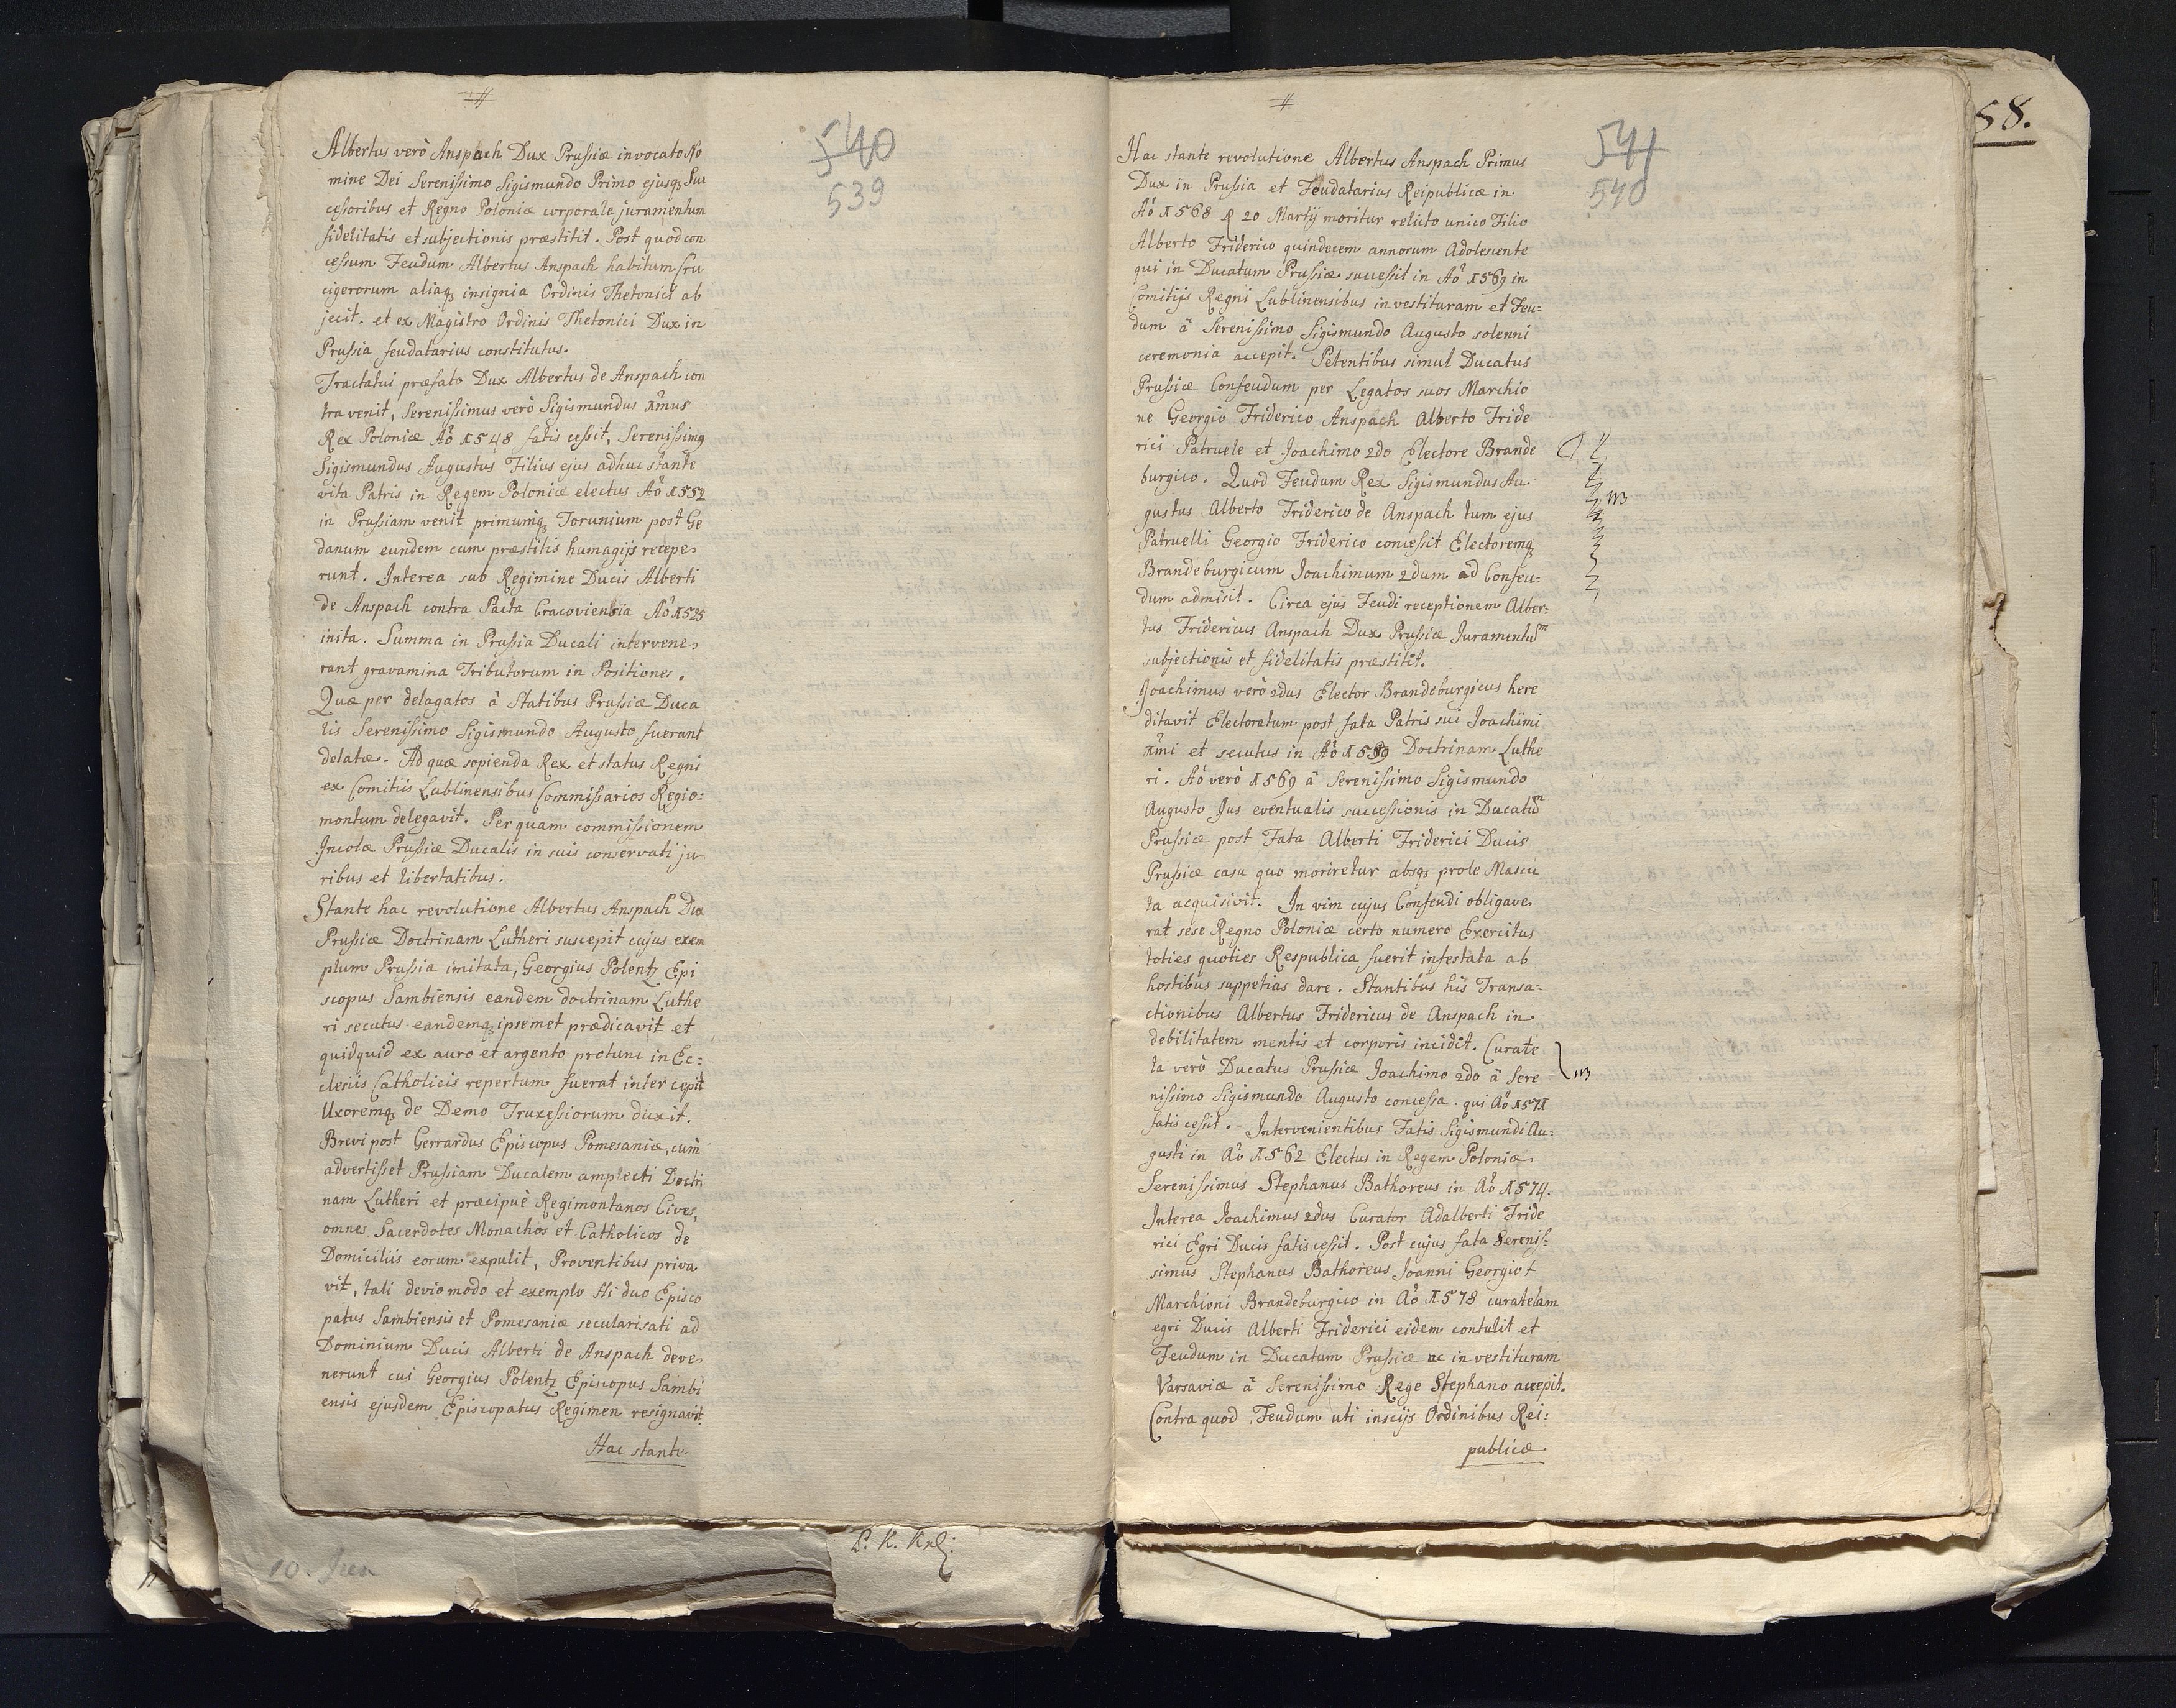 Albertus verò Anspach Dux Prussiæ invocato No
mine Dei Serenissimo Sigismundo Primo ejusq; Suc
cessoribus et Regno Poloniæ corporale juramentum
fidelitatis et subjectionis præstitit. Post quod con
cessum Feudum Albertus Anspach habitum Cru
cigerorum aliaq; insignia Ordinis Thetonici ab
jecit. et ex Magistro Ordinis Thetonici Dux in
Prussia feudatarius constitutus.
Tractatui præfato Dux Albertus de Anspach con
travenit, Serenissimus verò Sigismundus 1mus
Rex Poloniæ Aõ 1548 fatis cessit, Serenissimq
Sigismundus Augustus Filius ejus adhuc stante
vita Patris in Regem Poloniæ electus Aõ 1552
in Prussiam venit primumq; Torunium post Ge
danum eundem cum præstitis humagijs recepe
runt. Interea sub Regimine Ducis Alberti
de Anspach contra Pacta Cracoviensia Aõ 1525
inita. Summa in Prussia Ducali intervene
rant gravamina Tributorum in Positiones.
Quæ per delagatos à Statibus Prussiæ Duca
lis Serenissimo Sigismundo Augusto fuerant
delatæ. Ad quæ sopienda Rex et status Regni
ex Comitiis Lublinensibus Commissarios Regio=
montum delegavit. Per quam commissionem
Incolæ Prussiæ Ducalis in suis conservati ju
ribus et libertatibus.
Stante hac revolutione Albertus Anspach Dux
Prussiæ Doctrinam Lutheri suscepit cujus exem
plum Prussia imitata, Georgius Polentz Epi
scopus Sambiensis eandem doctrinam Luthe
ri secutus eandemq; ipsemet prædicavit et
quidquid ex auro et argento protunc in Ec=
clesiis Catholicis repertum fuerat intercepit
Uxoremq; de Demo Truxessiorum duxit.
Brevi post Gerrardus Episcopus Pomesaniæ, cum
advertisset Prussiam Ducalem amplecti Doctri
nam Lutheri et præcipuè Regimontanos Cives,
omnes Sacerdotes Monachos et Catholicos de
Domiciliis eorum expulit, Proventibus priva
vit, tali devio modo et exemplo Hi duo Episco
patus Sambiensis et Pomesaniæ secularisati ad
Dominium Ducis Alberti de Anspach deve
nerunt cui Georgius Polentz Episcopus Sambi
ensis ejusdem Episcopatus Regimen resignavit.
Hac stante
540
539
S. K.
10.
Hac stante revolutione Albertus Anspach Primus
Dux in Prussia et Feudatarius Reipublicæ in
Aõ 1568 20 Martij moritur relicto unico Filio
Alberto Friderico quindecem annorum Adolescente
qui in Ducatum Prussiæ successit in Aõ 1569 in
Comitijs Regni Lublinensibus investituram et Feu=
dum à Serenissimo Sigismundo Augusto solenni
ceremonia accepit. Petentibus simul Ducatus
Prussiæ Confeudum per Legatos suos Marchio
ne Georgio Friderico Anspach Alberto Fride
rici Patruele et Joachimo 2do Electore Brande
burgico. Quod Feudum Rex Sigismundus Au
gustus Alberto Friderico de Anspach tum ejus
Patruelli Georgio Friderico concessit Electoremq;
Brandeburgicum Joachimum 2dum ad Confeu=
dum admisit. Circa ejus Feudi receptionem Alber=
tus Fridericus Anspach Dux Prussiæ Juramentum
subjectionis et fidelitatis præstitit.
Joachimus verò 2dus Elector Brandeburgicus here
ditavit Electoratum post fata Patris sui Joachimi
1mi et secutus in Aõ 1539 Doctrinam Luthe
ri. Aõ verò 1569 à Serenissimo Sigismundo
Augusto Jus eventualis successionis in Ducatum
Prussiæ post Fata Alberti Friderici Ducis
Prussiæ casu quo moriretur absq; prole Mascu
la acquisivit. In vim cujus Confeudi obligave
rat sese Regno Poloniæ certo numero Exercitus
toties quoties Respublica fuerit infestata ab
hostibus suppetias dare. Stantibus his Transa=
ctionibus Albertus Fridericus de Anspach in
debilitatem mentis et corporis incidit. Curate
la verò Ducatus Prussiæ Joachimo 2do à Sere
nissimo Sigismundo Augusto concessa. qui Aõ 1571
fatis cessit. Intervenientibus Fatis Sigismundi Au=
gusti in Aõ 1562 Electus in Regem Poloniæ
Serenissimus Stephanus Bathoreus in Aõ 1574.
Interea Joachimus 2dus Curator Adalberti Fride
rici Egri Ducis fatis cessit. Post cujus fata Sereniss=
simus Stephanus Bathoreus Joanni Georgio
Marchioni Brandeburgico in Aõ 1578 curatelam
egri Ducis Alberti Friderici eidem contulit et
Feudum in Ducatum Prussiæ ac investituram
Varsaviæ à Serenissimo Rege Stephano accepit.
Contra quod Feudum uti insciis Ordinibus Rei=
publicæ
541
540
58.